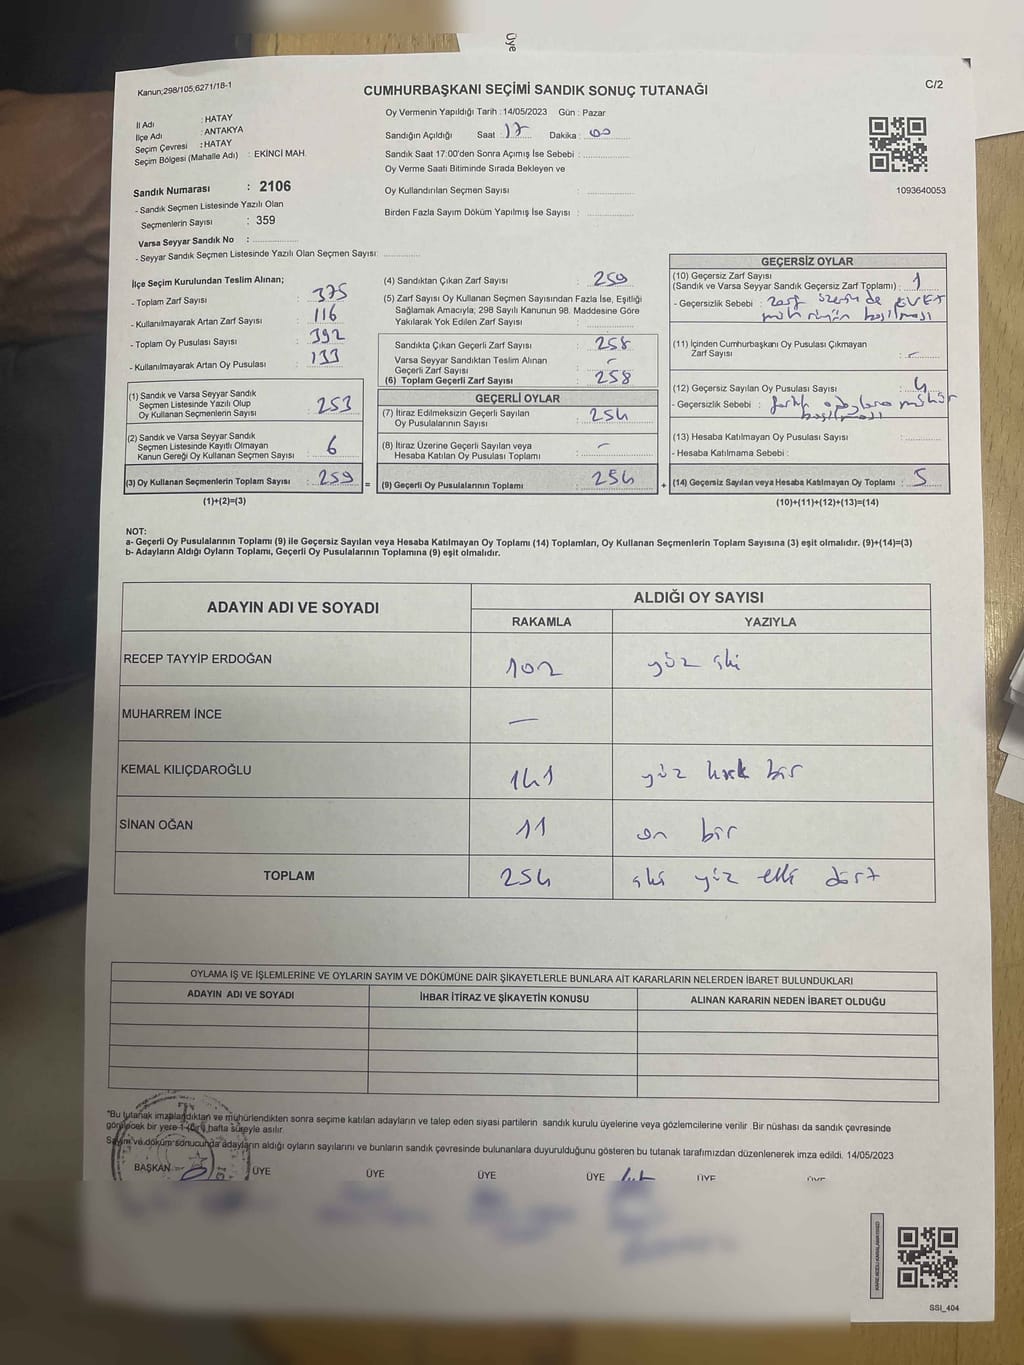 Üye
Kanun;298/105,6271/18-1
CUMHURBAŞKANI SEÇİMİ SANDIK SONUÇ TUTANAĞI
C/2
Oy Vermenin Yapıldığı Tarih : 14/05/2023 Gün : Pazar
Sandığın Açıldığı Saat : 17 Dakika : 00
Sandık Saat 17:00'den Sonra Açımış İse Sebebi :
Oy Verme Saati Bitiminde Sırada Bekleyen ve
Oy Kullandırılan Seçmen Sayısı :
Birden Fazla Sayım Döküm Yapılmış İse Sayısı :
İl Adı : HATAY
İlçe Adı : ANTAKYA
Seçim Çevresi : HATAY
Seçim Bölgesi (Mahalle Adı) : EKİNCİ MAH.
Sandık Numarası : 2106
- Sandık Seçmen Listesinde Yazılı Olan
Seçmenlerin Sayısı : 359
Varsa Seyyar Sandık No :
- Seyyar Sandık Seçmen Listesinde Yazılı Olan Seçmen Sayısı:
1093640053
İlçe Seçim Kurulundan Teslim Alınan;
- Toplam Zarf Sayısı : 375
- Kullanılmayarak Artan Zarf Sayısı : 116
- Toplam Oy Pusulası Sayısı : 392
- Kullanılmayarak Artan Oy Pusulası : 133
(1) Sandık ve Varsa Seyyar Sandık
Seçmen Listesinde Yazılı Olup
Oy Kullanan Seçmenlerin Sayısı : 253
(2) Sandık ve Varsa Seyyar Sandık
Seçmen Listesinde Kayıtlı Olmayan
Kanun Gereği Oy Kullanan Seçmen Sayısı : 6
(3) Oy Kullanan Seçmenlerin Toplam Sayısı : 259 =
(1)+(2)=(3)
(4) Sandıktan Çıkan Zarf Sayısı : 259
(5) Zarf Sayısı Oy Kullanan Seçmen Sayısından Fazla İse, Eşitliği
Sağlamak Amacıyla; 298 Sayılı Kanunun 98. Maddesine Göre
Yakılarak Yok Edilen Zarf Sayısı :
Sandıkta Çıkan Geçerli Zarf Sayısı : 258
Varsa Seyyar Sandıktan Teslim Alınan
Geçerli Zarf Sayısı : -
(6) Toplam Geçerli Zarf Sayısı : 258
GEÇERLİ OYLAR
(7) İtiraz Edilmeksizin Geçerli Sayılan
Oy Pusulalarının Sayısı : 254
(8) İtiraz Üzerine Geçerli Sayılan veya
Hesaba Katılan Oy Pusulası Toplamı : -
(9) Geçerli Oy Pusulalarının Toplamı : 254 +
GEÇERSİZ OYLAR
(10) Geçersiz Zarf Sayısı
(Sandık ve Varsa Seyyar Sandık Geçersiz Zarf Toplamı) : 1
- Geçersizlik Sebebi : Zarf üzerinde EVET
mührünün basılması
(11) İçinden Cumhurbaşkanı Oy Pusulası Çıkmayan
Zarf Sayısı : -
(12) Geçersiz Sayılan Oy Pusulası Sayısı : 4
- Geçersizlik Sebebi : farklı adaylara mühür
basılması
(13) Hesaba Katılmayan Oy Pusulası Sayısı :
- Hesaba Katılmama Sebebi :
(14) Geçersiz Sayılan veya Hesaba Katılmayan Oy Toplamı : 5
(10)+(11)+(12)+(13)=(14)
NOT:
a- Geçerli Oy Pusulalarının Toplamı (9) ile Geçersiz Sayılan veya Hesaba Katılmayan Oy Toplamı (14) Toplamları, Oy Kullanan Seçmenlerin Toplam Sayısına (3) eşit olmalıdır. (9)+(14)=(3)
b- Adayların Aldığı Oyların Toplamı, Geçerli Oy Pusulalarının Toplamına (9) eşit olmalıdır.
ADAYIN ADI VE SOYADI
ALDIĞI OY SAYISI
RAKAMLA YAZIYLA
RECEP TAYYİP ERDOĞAN 102 yüz iki
MUHARREM İNCE —
KEMAL KILIÇDAROĞLU 141 yüz kırk bir
SİNAN OĞAN 11 on bir
TOPLAM 254 iki yüz elli dört
OYLAMA İŞ VE İŞLEMLERİNE VE OYLARIN SAYIM VE DÖKÜMÜNE DAİR ŞİKAYETLERLE BUNLARA AİT KARARLARIN NELERDEN İBARET BULUNDUKLARI
ADAYIN ADI VE SOYADI İHBAR İTİRAZ VE ŞİKAYETİN KONUSU ALINAN KARARIN NEDEN İBARET OLDUĞU
"Bu tutanak imzalandıktan ve mühürlendikten sonra seçime katılan adayların ve talep eden siyasi partilerin sandık kurulu üyelerine veya gözlemcilerine verilir .Bir nüshası da sandık çevresinde
görülecek bir yere 1 (Bir) hafta süreyle asılır.
Sayım ve döküm sonucunda adayların aldığı oyların sayılarını ve bunların sandık çevresinde bulunanlara duyurulduğunu gösteren bu tutanak tarafımızdan düzenlenerek imza edildi. 14/05/2023
BAŞKAN ÜYE ÜYE ÜYE ÜYE ÜYE ÜYE
SSI_404